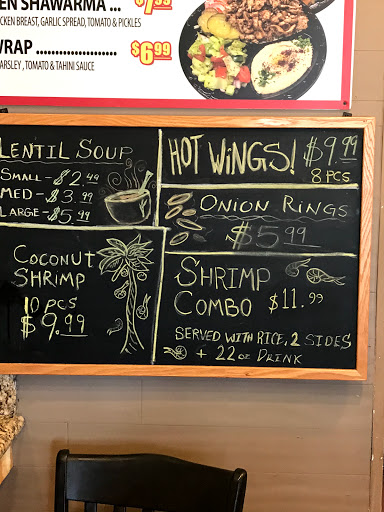 EN SHAWARMA ... $7.99
CKEN BREAST, GARLIC SPREAD, TOMATO & PICKLES
WRAP .................... $6.99
ARSLEY, TOMATO & TAHINI SAUCE
LENTIL SOUP
SMALL - $2.49
MED - $3.99
LARGE - $5.99
HOT WiNGS! $9.99
8 PCS
ONION RINGS
$5.99
COCONUT
SHRIMP
10 PCS
$9.99
SHRIMP
COMBO $11.99
SERVED WITH RICE, 2 SIDES
+ 22 oz DRINK